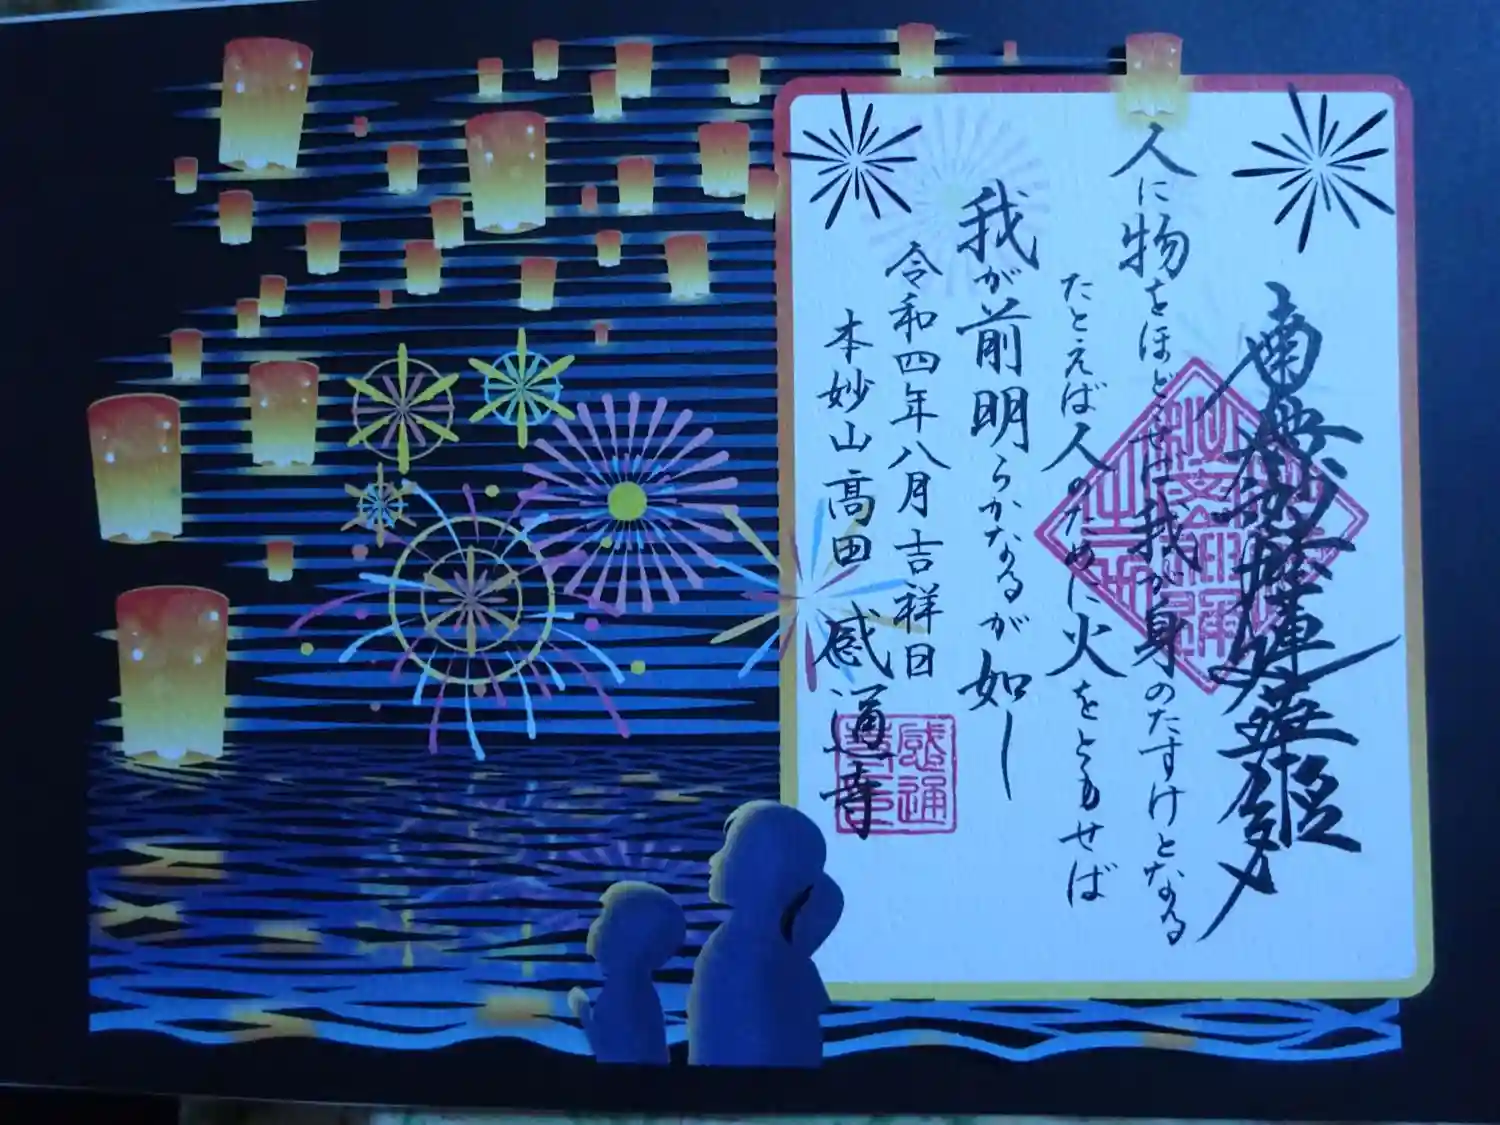 南無妙法蓮華經
人に物をほどこせば我が身のたすけとなる
たとえば人のために火をともせば
我が前明らかなるが如し
令和四年八月吉祥日
本妙山髙田 感通寺
感通